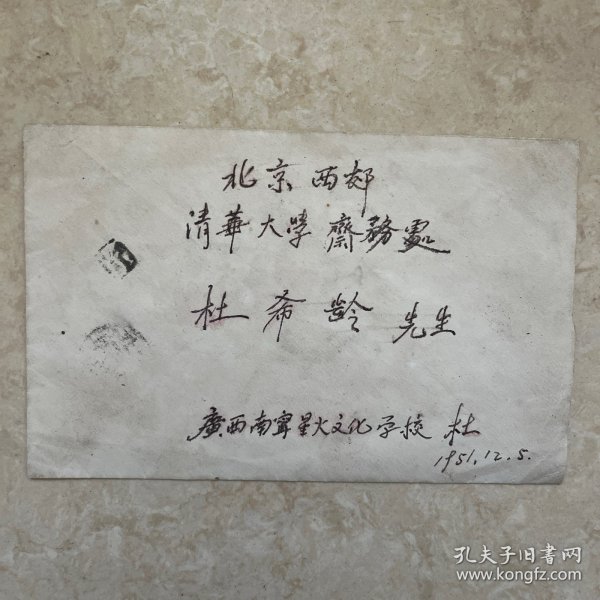 北京西郊
清華大學齋務處
杜希齡先生
廣西南寧星火文化学校 杜
1951.12.5.
孔夫子旧書网
www.kongfz.com